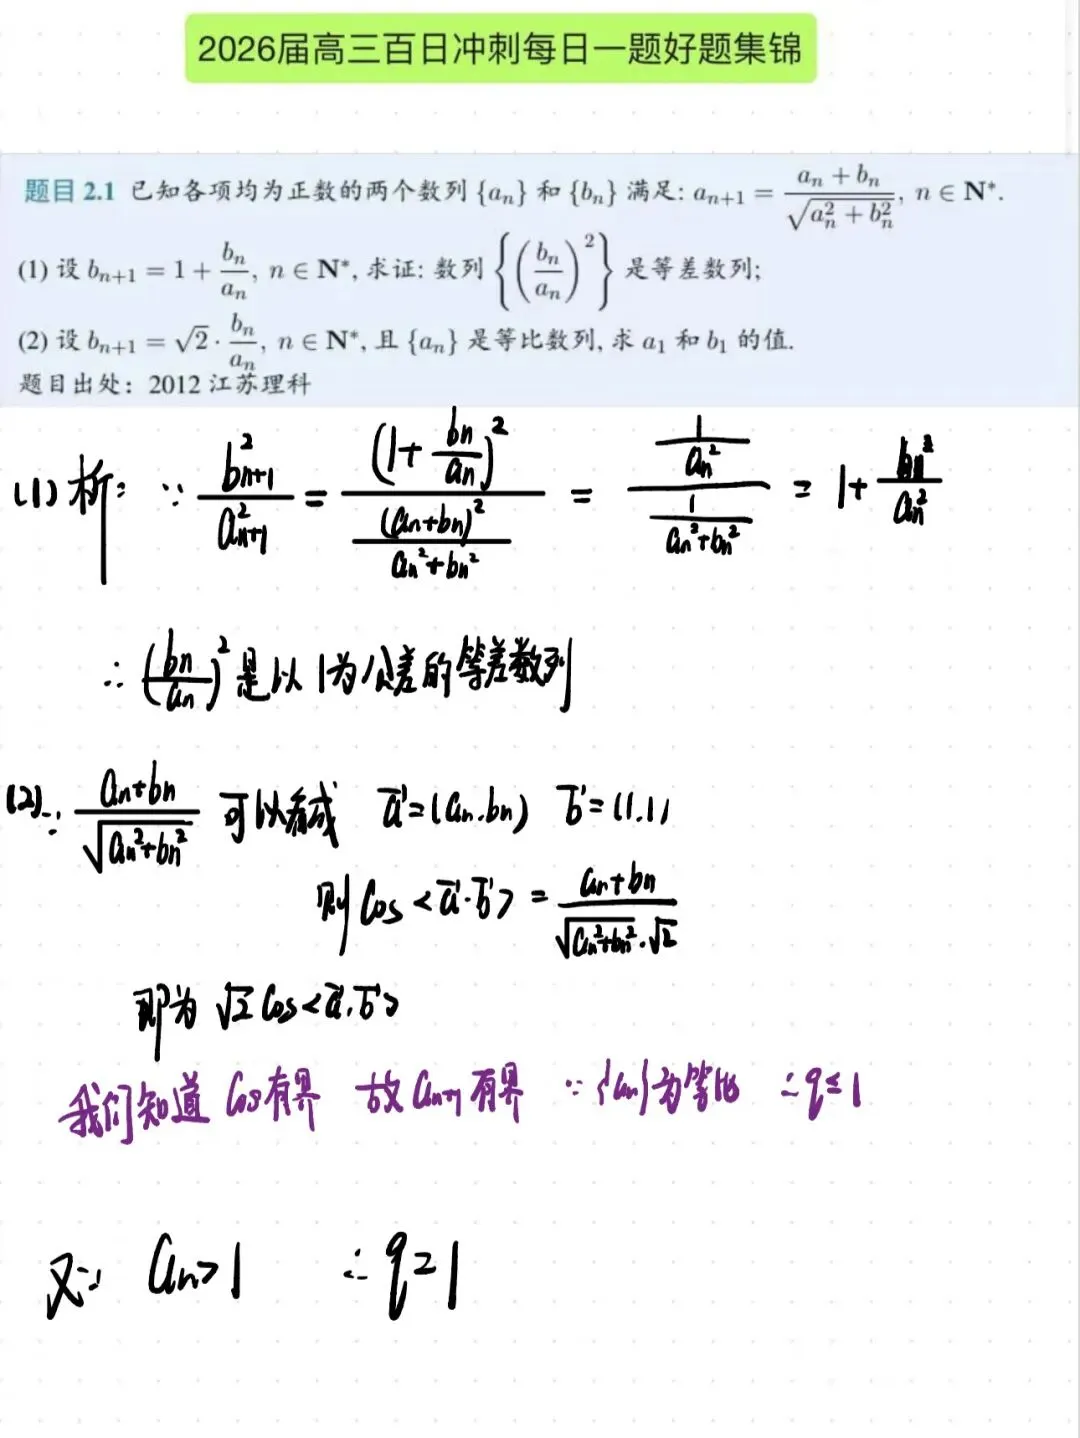 2026届高三百日冲刺每日一题好题集锦
题目 2.1 已知各项均为正数的两个数列 {aₙ} 和 {bₙ} 满足: aₙ₊₁ = (aₙ + bₙ)/√(aₙ² + bₙ²), n ∈ N*.
(1) 设 bₙ₊₁ = 1 + bₙ/aₙ, n ∈ N*, 求证: 数列 {(bₙ/aₙ)²} 是等差数列;
(2) 设 bₙ₊₁ = √2 · bₙ/aₙ, n ∈ N*, 且 {aₙ} 是等比数列, 求 a₁ 和 b₁ 的值.
题目出处: 2012 江苏理科
(1) 析: ∵ b²ₙ₊₁/a²ₙ₊₁ = (1 + bₙ/aₙ)²/((aₙ+bₙ)²/(aₙ²+bₙ²)) = (1/aₙ²)/(1/(aₙ²+bₙ²)) = 1 + bₙ²/aₙ²
∴ (bₙ/aₙ)² 是以1为公差的等差数列
(2) ∵ (aₙ+bₙ)/√(aₙ²+bₙ²) 可以看成 a⃗=(aₙ.bₙ) b⃗=(1.1)
则 cos<a⃗·b⃗> = (aₙ+bₙ)/(√(aₙ²+bₙ²)·√2)
即为 √2 cos<a⃗.b⃗>
我们知道 cos有界 故 aₙ₊₁ 有界 ∵{aₙ}为等比 ∴q≤1
又∵ aₙ>1 ∴q=1